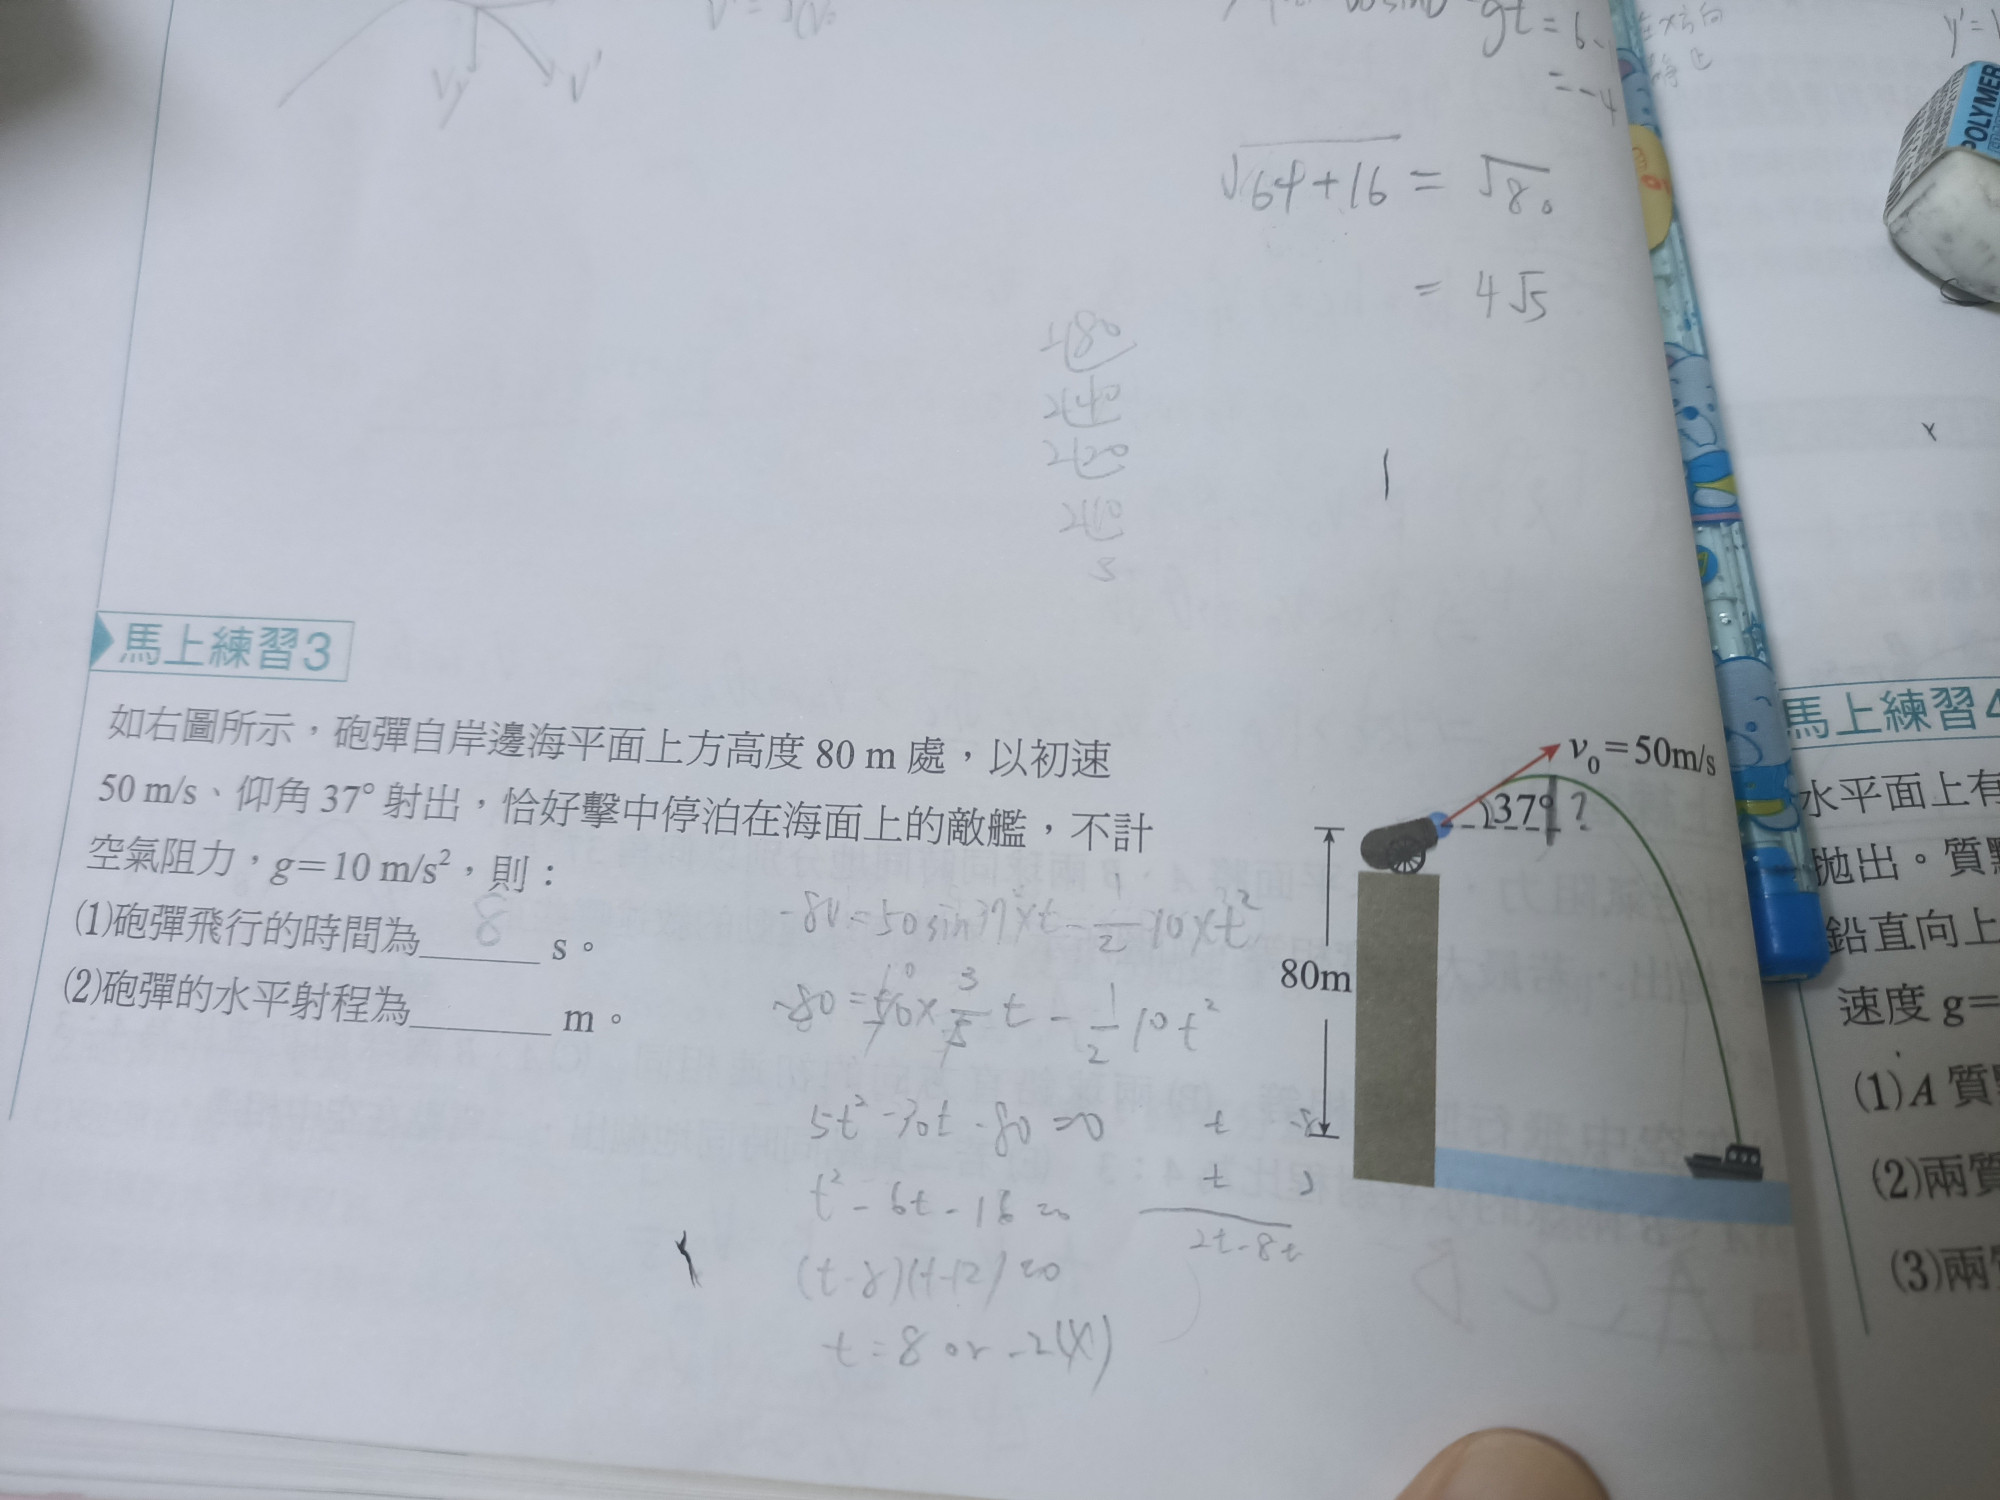 gt = 6
= -4
在x方向
靜止
y' =
Vy
V'
POLYMER
√64+16 = √80
= 4√5
2 80
2 40
2 20
2 10
5
馬上練習3
如右圖所示，砲彈自岸邊海平面上方高度 80 m 處，以初速
50 m/s、仰角 37° 射出，恰好擊中停泊在海面上的敵艦，不計
空氣阻力，g＝10 m/s²，則：
(1)砲彈飛行的時間為 8 s。
(2)砲彈的水平射程為______ m。
v₀＝50m/s
37° ?
80m
-80 = 50sin37°xt - 1/2 x10xt²
-80 = 50 10 x 3/5 t - 1/2 10t²
5t² - 30t - 80 = 0
t² - 6t - 16 = 0
(t-8)(t+2) = 0
t = 8 or -2(X)
t -8
t 2
2t-8t
馬上練習4
水平面上有
拋出。質點
鉛直向上
速度 g＝
(1)A 質點
(2)兩質
(3)兩質